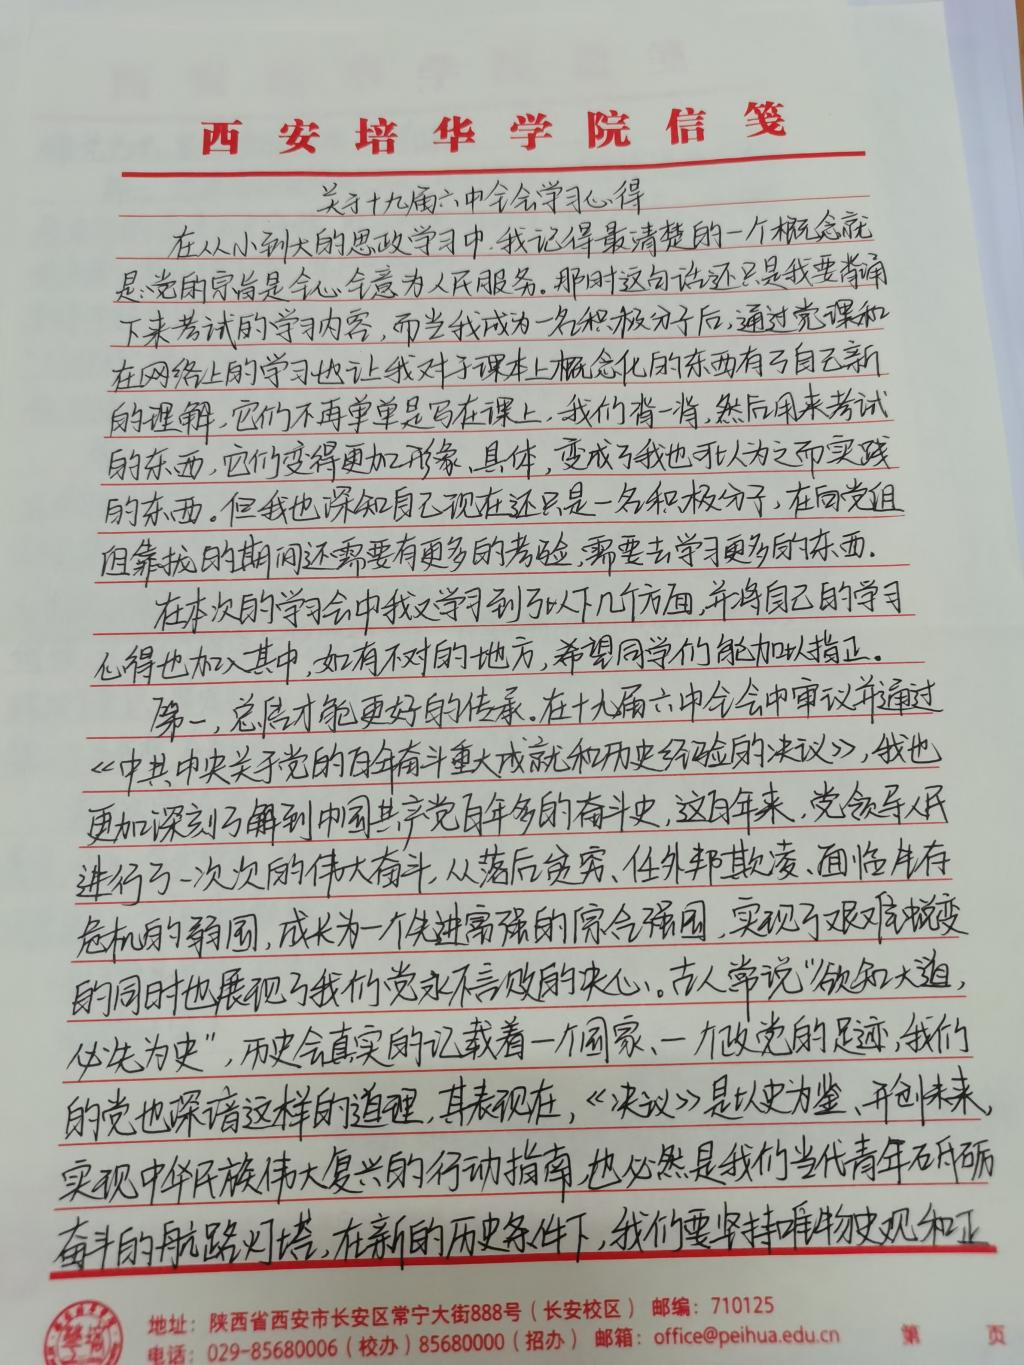 西安培华学院信笺
关于十九届六中全会学习心得
在从小到大的思政学习中,我记得最清楚的一个概念就
是:党的宗旨是全心全意为人民服务。那时这句话还只是我要背诵
下来考试的学习内容,而当我成为一名积极分子后,通过党课和
在网络上的学习也让我对于课本上概念化的东西有了自己新
的理解,它们不再单单是写在课上,我们背一背,然后用来考试
的东西,它们变得更加形象、具体,变成了我也可以为之而实践
的东西。但我也深知自己现在还只是一名积极分子,在向党组
组靠拢的期间还需要有更多的考验,需要去学习更多的东西.
在本次的学习会中我又学习到了以下几个方面,并将自己的学习
心得也加入其中,如有不对的地方,希望同学们能加以指正。
第一,总结才能更好的传承.在十九届六中全会中审议并通过
《中共中央关于党的百年奋斗重大成就和历史经验的决议》,我也
更加深刻了解到中国共产党百年多的奋斗史,这百年来,党领导人民
进行了一次次的伟大奋斗,从落后贫穷、任外邦欺凌、面临生存
危机的弱国,成长为一个先进富强的综合强国,实现了艰难蜕变
的同时也展现了我们党永不言败的决心。古人常说"欲知大道,
必先为史",历史会真实的记载着一个国家、一个政党的足迹,我们
的党也深谙这样的道理,其表现在,《决议》是以史为鉴、开创未来,
实现中华民族伟大复兴的行动指南,也必然是我们当代青年砥砺
奋斗的航路灯塔,在新的历史条件下,我们要坚持唯物史观和正
地址:陕西省西安市长安区常宁大街888号(长安校区) 邮编:710125
电话:029-85680006(校办)85680000(招办) 邮箱:office@peihua.edu.cn 第 页